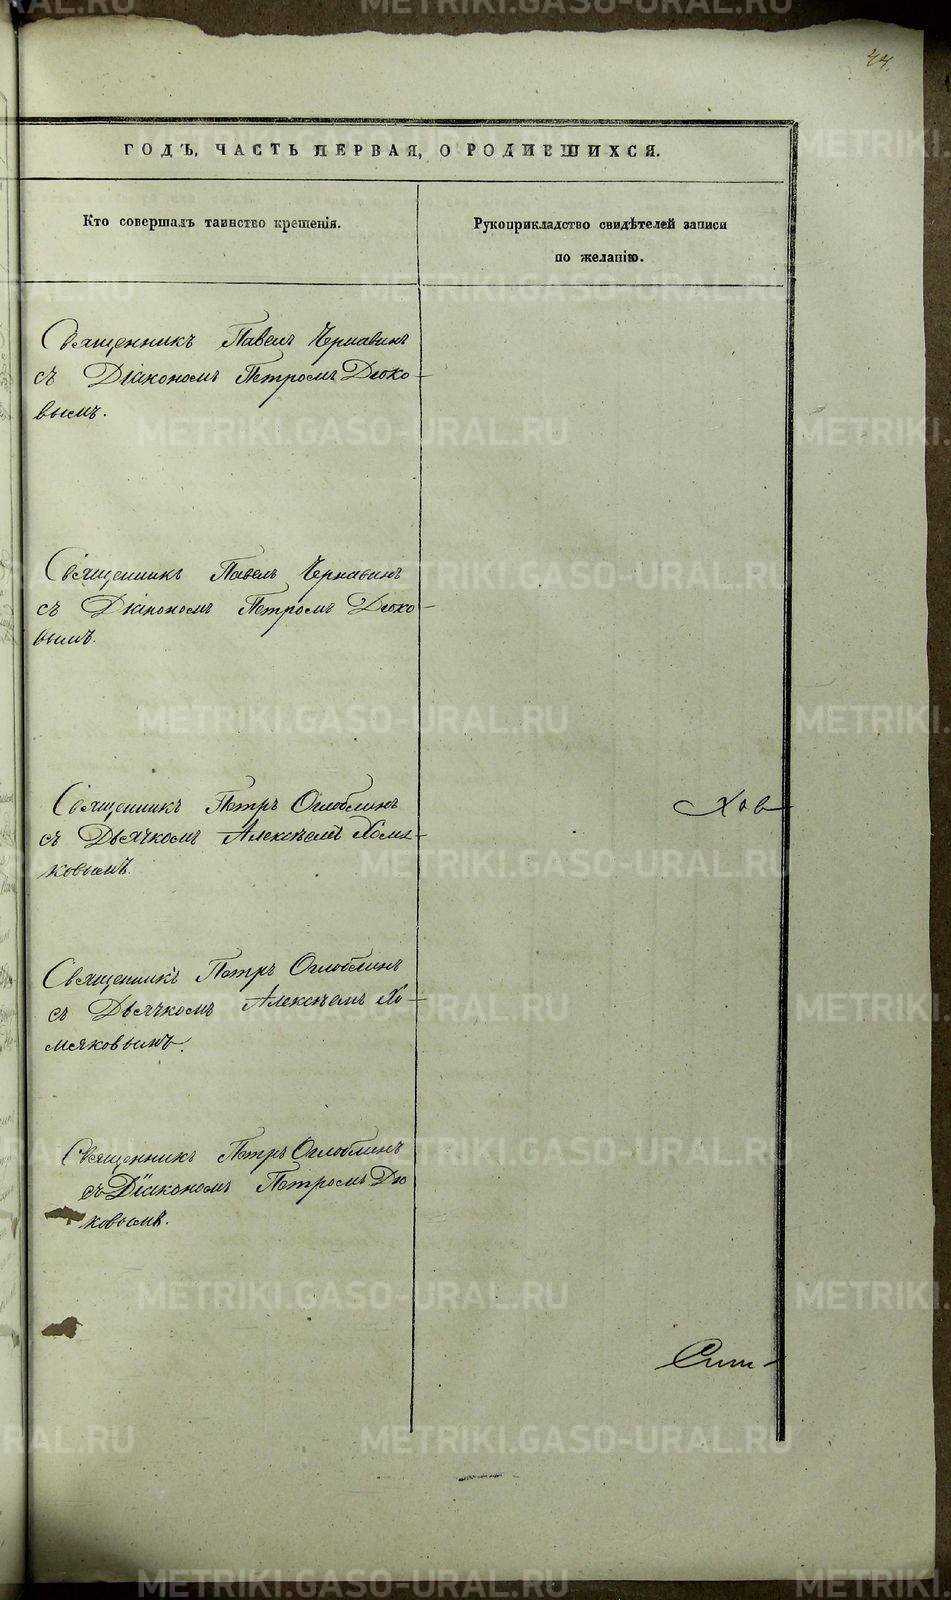 44.
ГОДЪ, ЧАСТЬ ПЕРВАЯ, О РОДИВШИХСЯ.
Кто совершалъ таинство крещенія.
Рукоприкладство свидѣтелей записи
по желанію.
Священникъ Павелъ Чернавинъ
съ Діакономъ Петромъ Дюко-
вымъ.
Священникъ Павелъ Чернавинъ
съ Діакономъ Петромъ Дюко-
вымъ.
Священникъ Петръ Оглоблинъ
съ Дьячкомъ Алексѣемъ Хомя-
ковымъ.
Хов-
Священникъ Петръ Оглоблинъ
съ Дьячкомъ Алексѣемъ Хо-
мяковымъ.
Священникъ Петръ Оглоблинъ
съ Діакономъ Петромъ Дю
ковымъ.
METRIKI.GASO-URAL.RU